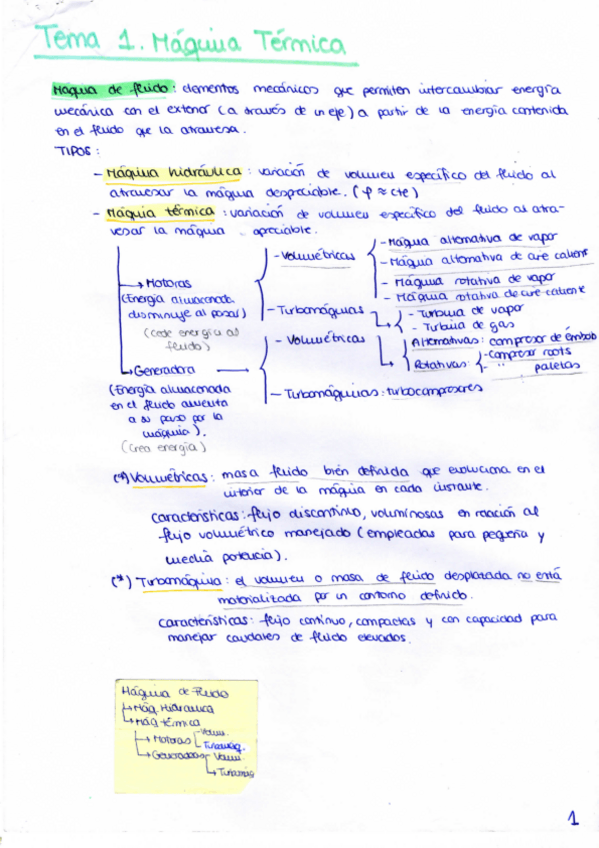 Tema 1. Máquina Térmica
Máquina de fluido: elementos mecánicos que permiten intercambiar energía
mecánica con el exterior (a través de un eje) a partir de la energía contenida
en el fluido que la atraviesa.
TIPOS:
- Máquina hidráulica: variación de volumen específico del fluido al
atravesar la máquina despreciable. (ρ ≈ cte)
- Máquina térmica: variación de volumen específico del fluido al atra-
vesar la máquina apreciable.
Motoras
(Energía almacenada
disminuye al pasar)
(cede energía al
fluido)
- Volumétricas
- Máquina alternativa de vapor
- Máquina alternativa de aire caliente
- Máquina rotativa de vapor
- Máquina rotativa de aire caliente
- Turbomáquinas
- Turbina de vapor
- Turbina de gas
Generadora
(Energía almacenada
en el fluido aumenta
a su paso por la
máquina).
(Crea energía)
- Volumétricas
Alternativas: compresor de émbolo
Rotativas: - compresor roots
- " paletas
- Turbomáquinas: turbocompresores
(*) Volumétricas: masa fluido bién definida que evoluciona en el
interior de la máquina en cada instante.
Características: flujo discontinuo, voluminosas en relación al
flujo volumétrico manejado (empleadas para pequeña y
media potencia).
(*) Turbomáquina: el volumen o masa de fluido desplazada no está
materializada por un contorno definido.
Características: flujo continuo, compactas y con capacidad para
manejar caudales de fluido elevados.
Máquina de Fluido
Máq. Hidraulica
Máq. térmica
Motoras
Volum.
Turbomáq.
Generadoras
Volum.
Turbomáq
1